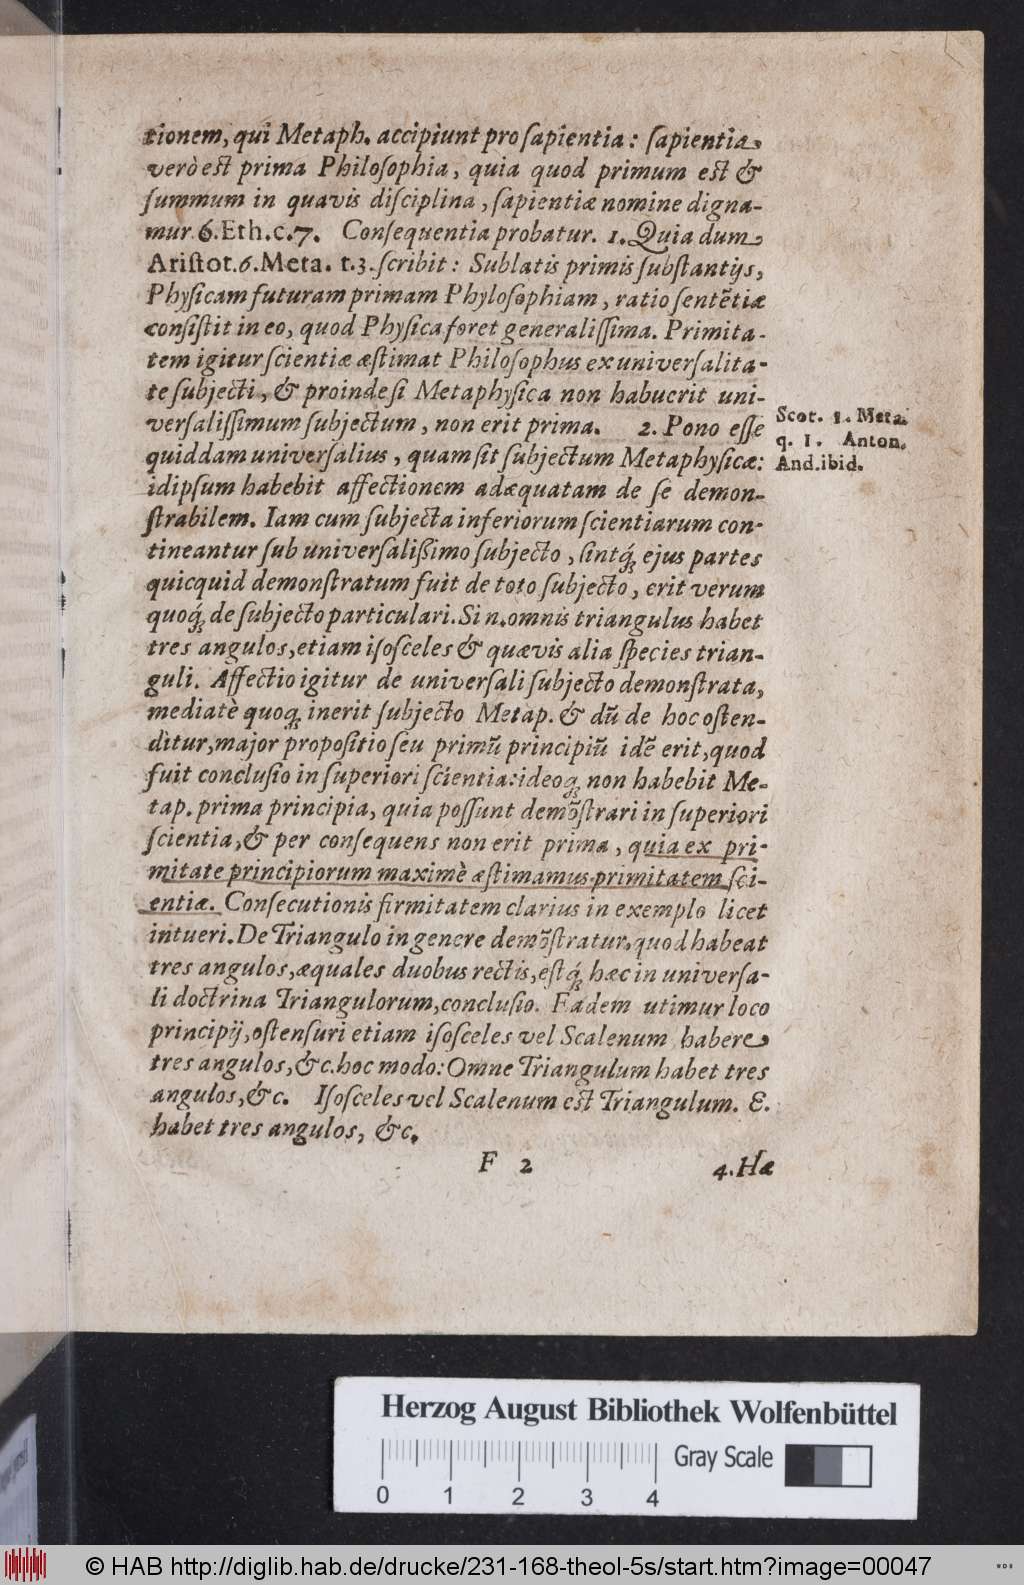 tionem, qui Metaph. accipiunt pro sapientia: sapientia
verò est prima Philosophia, quia quod primum est &
summum in quavis disciplina, sapientiæ nomine digna-
mur 6.Eth.c.7. Consequentia probatur. 1. Quia dum
Aristot.6.Meta. t.3. scribit: Sublatis primis substantijs,
Physicam futuram primam Phylosophiam, ratio sentẽtiæ
consistit in eo, quod Physica foret generalissima. Primita-
tem igitur scientiæ æstimat Philosophus ex universalita-
te subjecti, & proinde si Metaphysica non habuerit uni-
versalissimum subjectum, non erit prima. 2. Pono esse
Scot. 1. Meta.
q. 1. Anton.
And.ibid.
quiddam universalius, quam sit subjectum Metaphysicæ:
idipsum habebit affectionem adæquatam de se demon-
strabilem. Iam cum subjecta inferiorum scientiarum con-
tineantur sub universalißimo subjecto, sintq́; ejus partes
quicquid demonstratum fuit de toto subjecto, erit verum
quoq́; de subjecto particulari. Si n. omnis triangulus habet
tres angulos, etiam isosceles & quævis alia species trian-
guli. Affectio igitur de universali subjecto demonstrata,
mediatè quoq; inerit subjecto Metap. & dũ de hoc osten-
ditur, major propositio seu primũ principiũ idẽ erit, quod
fuit conclusio in superiori scientia: ideoq; non habebit Me-
tap. prima principia, quia possunt demõstrari in superiori
scientia, & per consequens non erit prima, quia ex pri-
mitate principiorum maximè æstimamus primitatem sci-
entiæ. Consecutionis firmitatem clarius in exemplo licet
intueri. De Triangulo in genere demõstratur, quod habeat
tres angulos, æquales duobus rectis, estq́; hæc in universa-
li doctrina Triangulorum, conclusio. Eadem utimur loco
principij, ostensuri etiam isosceles vel Scalenum habere
tres angulos, &c. hoc modo: Omne Triangulum habet tres
angulos, &c. Isosceles vel Scalenum est Triangulum. E.
habet tres angulos, &c.
F 2 4. Hæ
Herzog August Bibliothek Wolfenbüttel
Gray Scale
0 1 2 3 4
© HAB http://diglib.hab.de/drucke/231-168-theol-5s/start.htm?image=00047